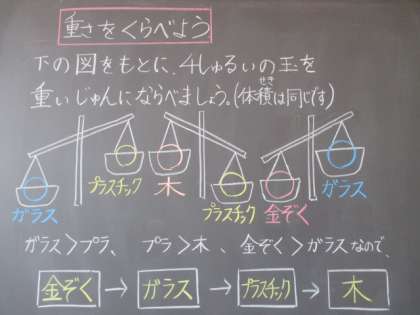 重さをくらべよう
下の図をもとに、4しゅるいの玉を
重いじゅんにならべましょう。(体積は同じです)
せき
ガラス プラスチック 木 プラスチック 金ぞく ガラス
ガラス>プラ、 プラ>木、 金ぞく>ガラスなので、
金ぞく→ガラス→プラスチック→木